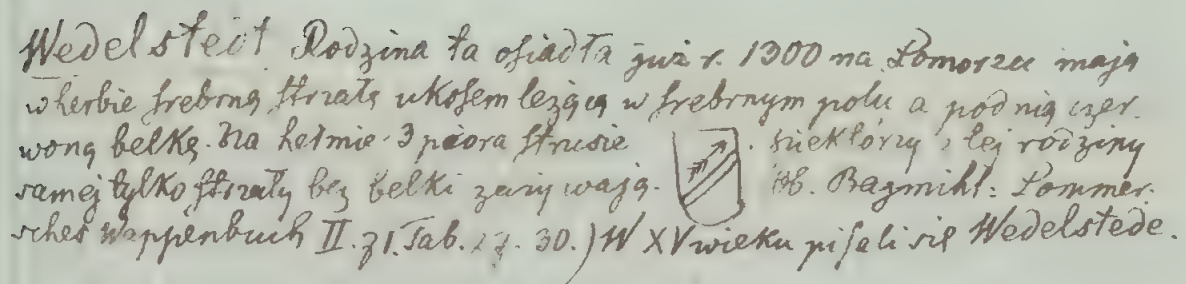 Wedelstedt Rodzina ta osiadła już r. 1300 na Pomorzu mają
w herbie srebrną strzałę ukosem leżącą w srebrnym polu a pod nią czer-
woną belkę. Na hełmie 3 pióra strusie. Niektórzy z tej rodziny
samej tylko strzały bez belki zażywają. (Ob. Bagmihl: Pommer-
sches Wappenbuch II. 71. Tab. 30.) W XV wieku pisali się Wedelstede.